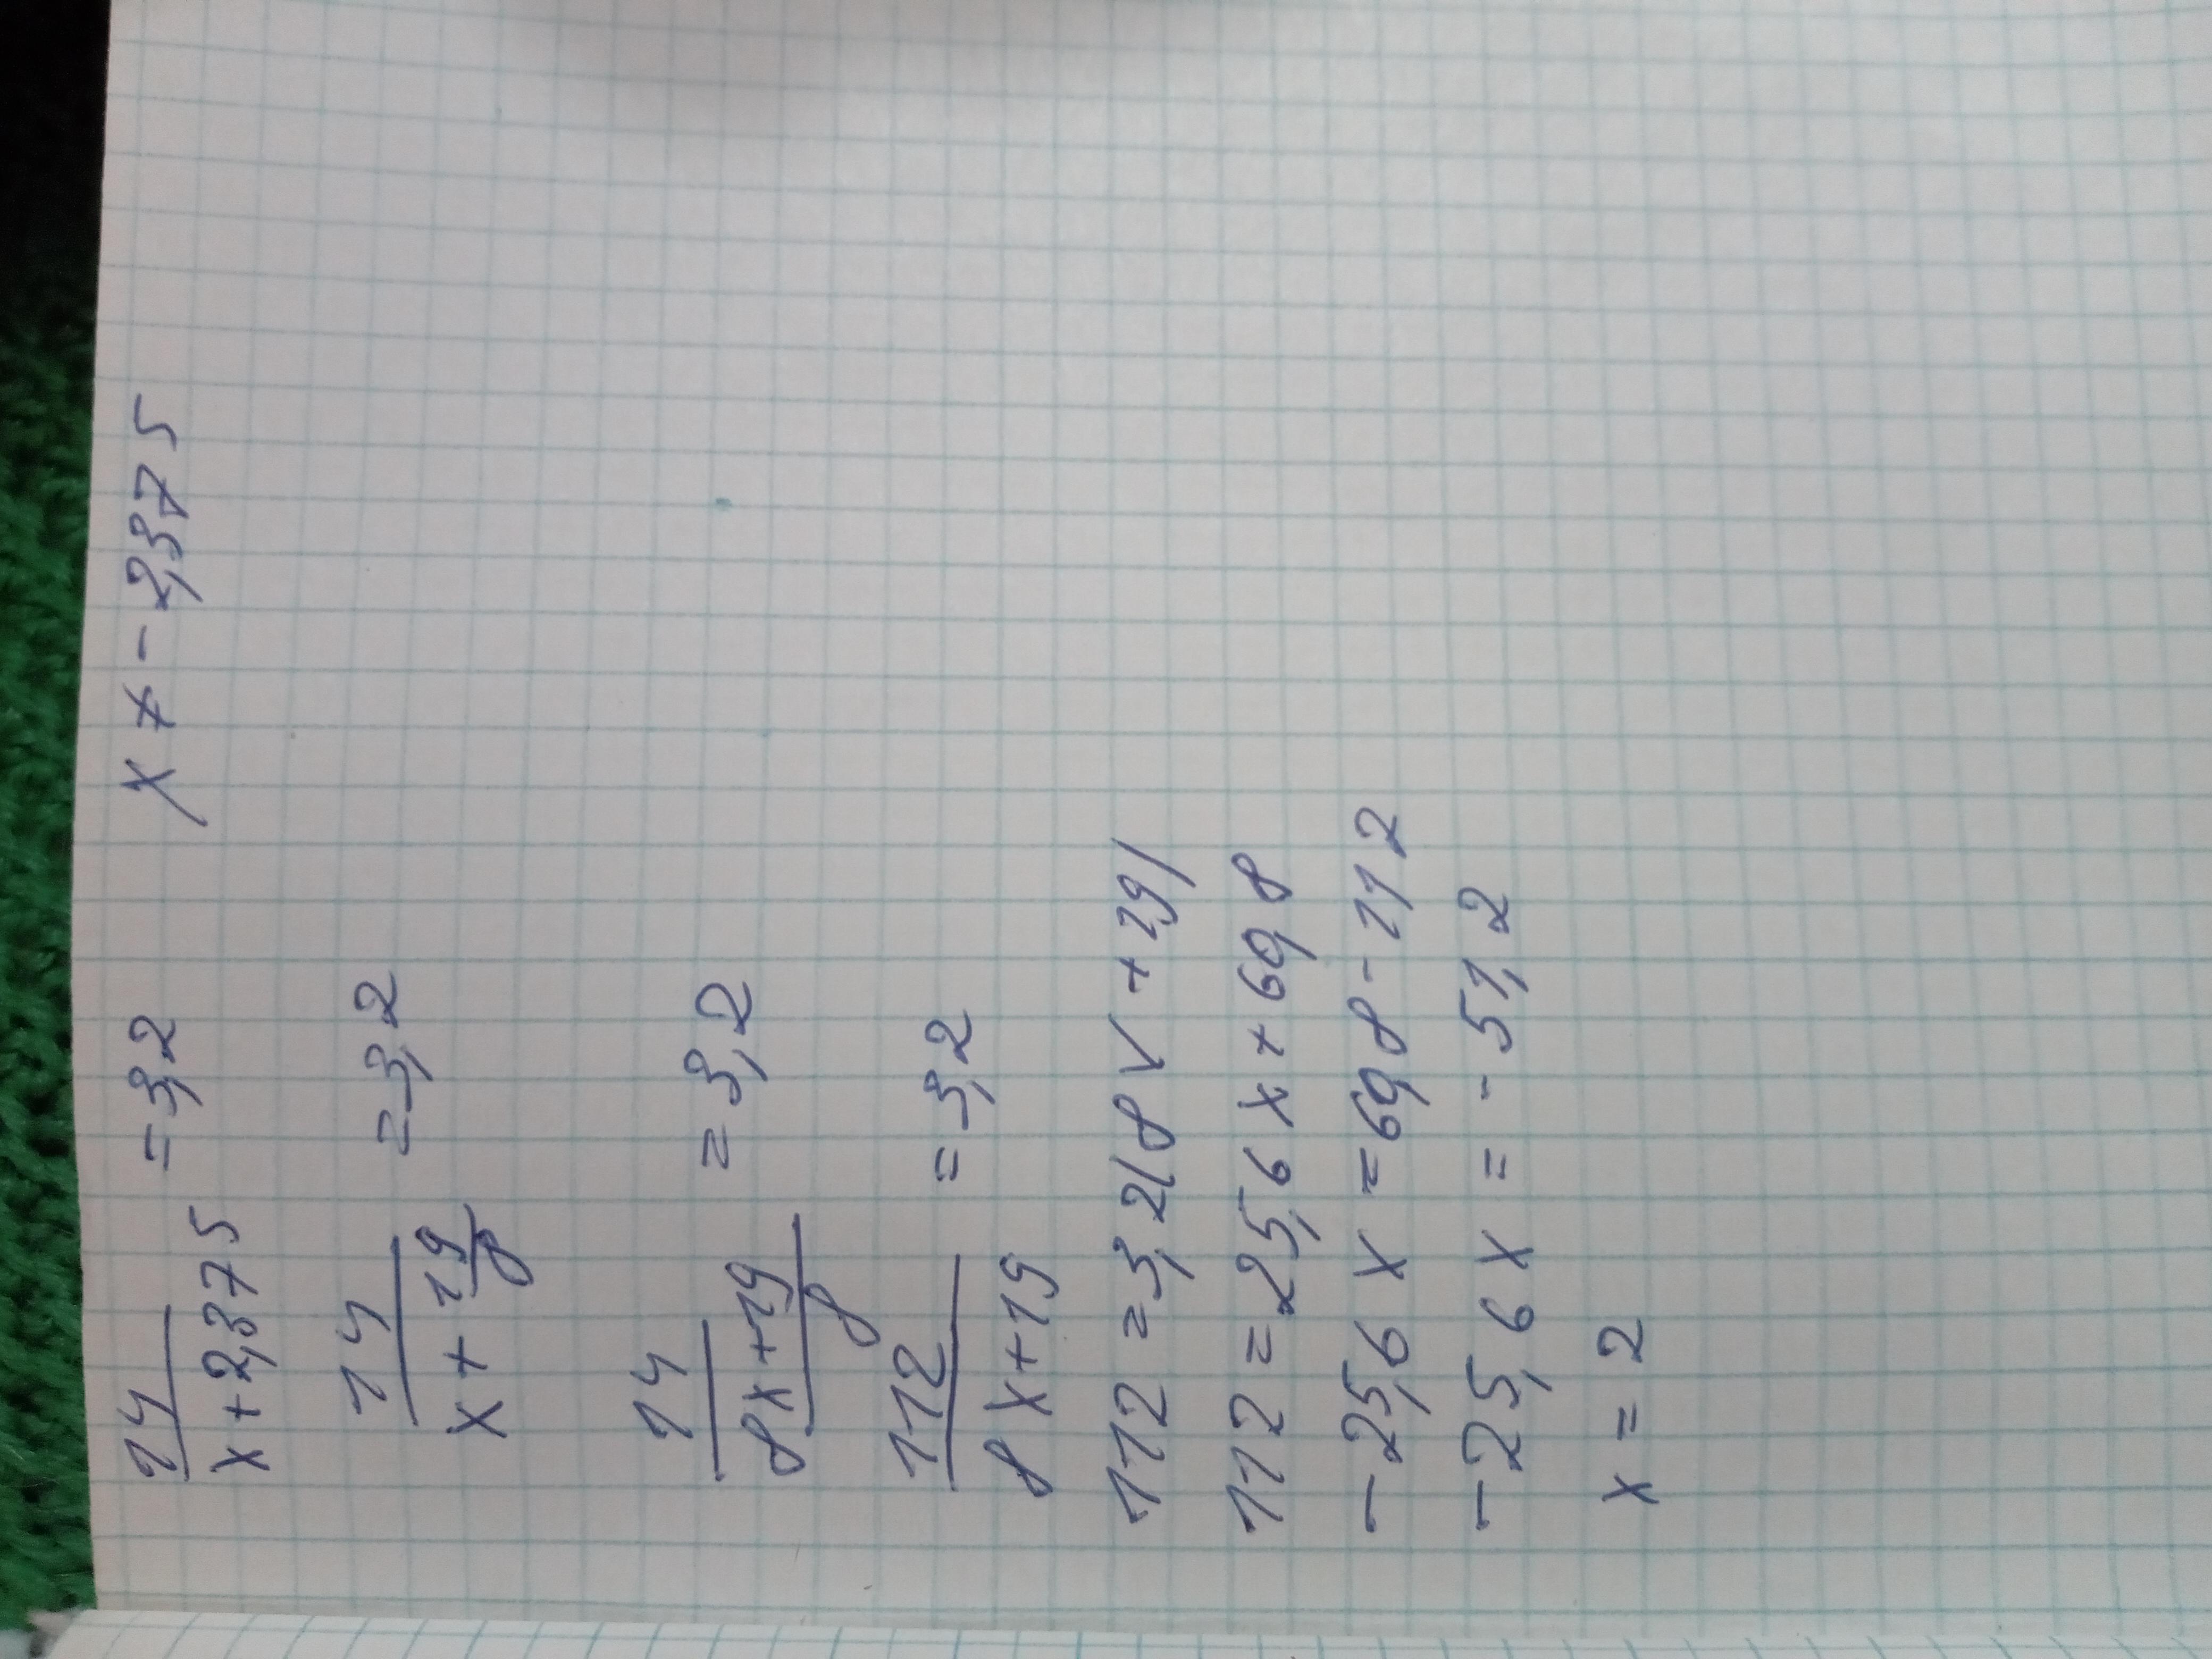 14/(x+2,375) = 3,2 x ≠ -2,375
14/(x+19/8) = 3,2
14/((8x+19)/8) = 3,2
112/(8x+19) = 3,2
112 = 3,2(8x+19)
112 = 25,6x+60,8
-25,6x = 60,8-112
-25,6x = -51,2
x = 2